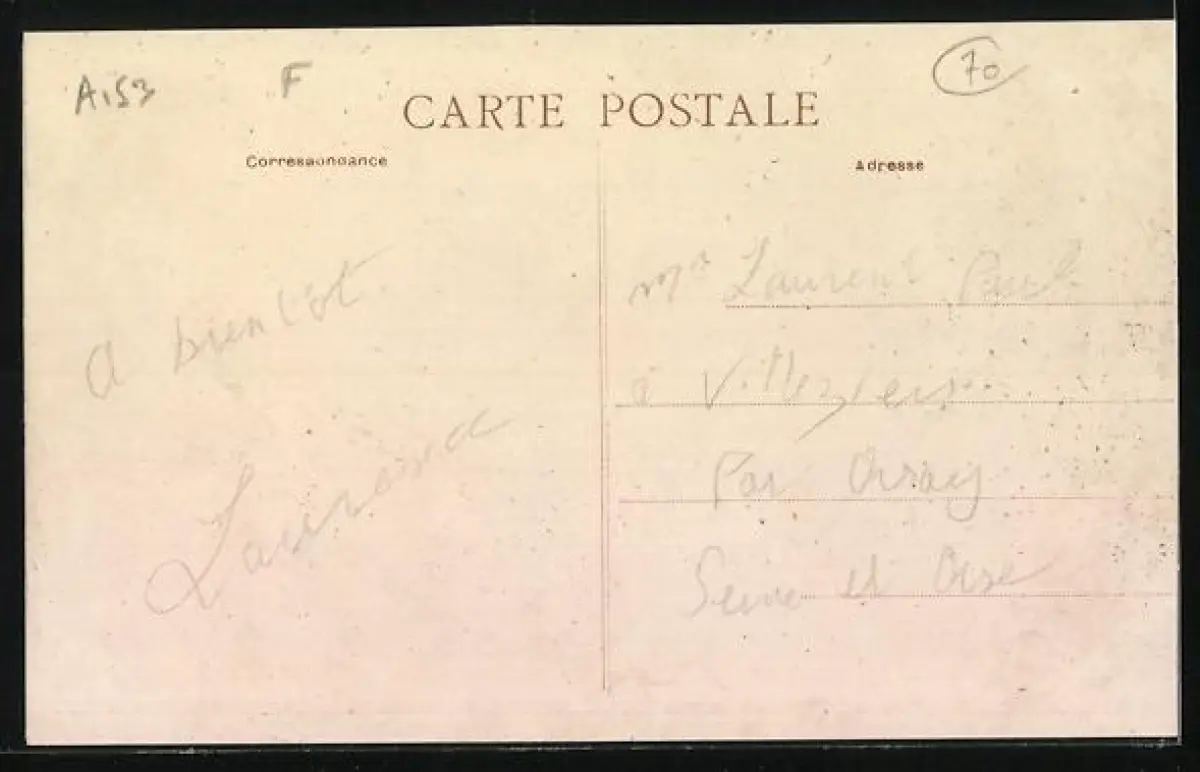 A.53
F
70
CARTE POSTALE
Correspondance
Adresse
a bientôt
Laurent
Mr Laurent Paul
à Villeziers
Par Orsay
Seine et Oise